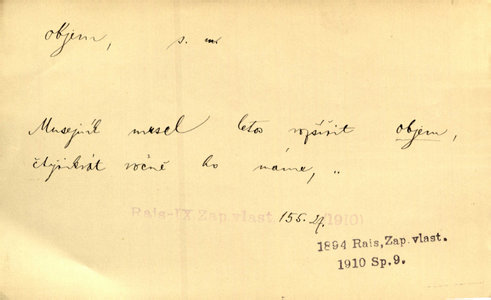 objem, s. m
Musejník musel letos rozšířit objem,
čtyřikrát ročně ho máme, „
Rais-IX Zap. vlast. (1910)
155.27.
1894 Rais, Zap. vlast.
1910 Sp. 9.